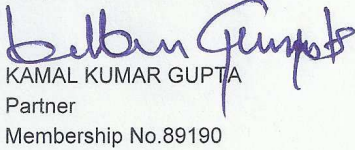 KAMAL KUMAR GUPTA
Partner
Membership No.89190